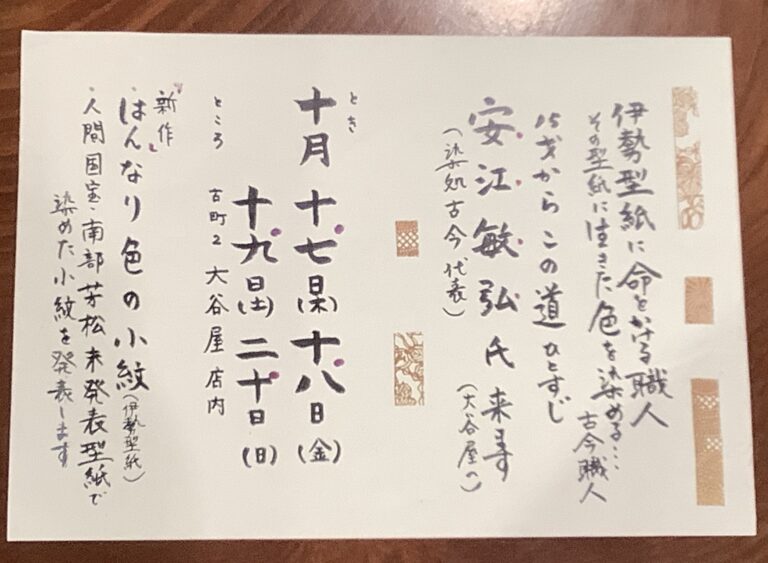 伊勢型紙に命をかける職人
その型紙に生きた色を染める…
古今職人
15才からこの道ひとすじ
安江敏弘氏来ます
(染処古今代表)
(大谷屋へ)
とき
十月十七日(木)十八日(金)
十九日(土)二十日(日)
ところ 古町2 大谷屋店内
「新作」
・はんなり色の小紋(伊勢型紙)
・人間国宝・南部芳松未発表型紙で
染めた小紋を発表します